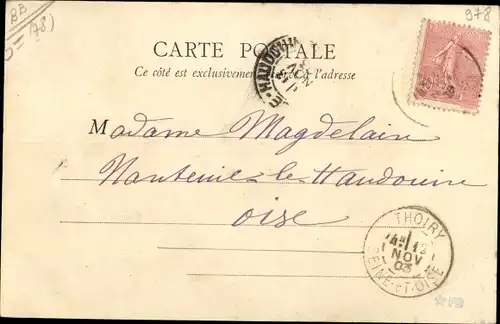 BB
78)
978
CARTE POSTALE
Ce côté est exclusivement à l'adresse
Madame Magdelaine
Nanteuil le Haudouin
Oise
THOIRY
12
NOV
03
SEINE-ET-OISE